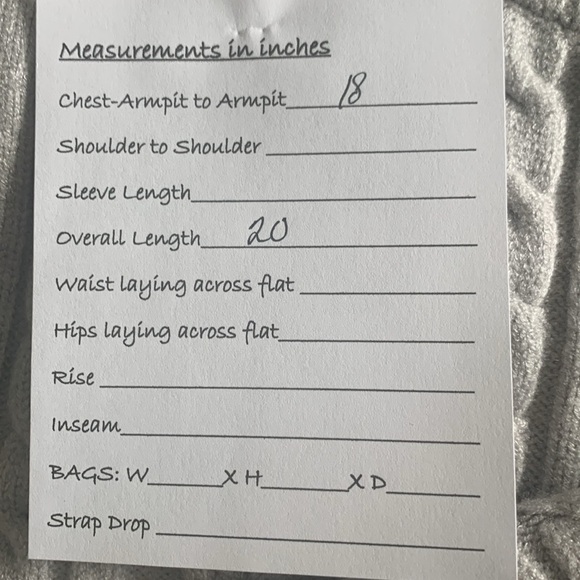 Measurements in inches
Chest-Armpit to Armpit 18
Shoulder to Shoulder
Sleeve Length
Overall Length 20
Waist laying across flat
Hips laying across flat
Rise
Inseam
BAGS: W______X H______X D______
Strap Drop